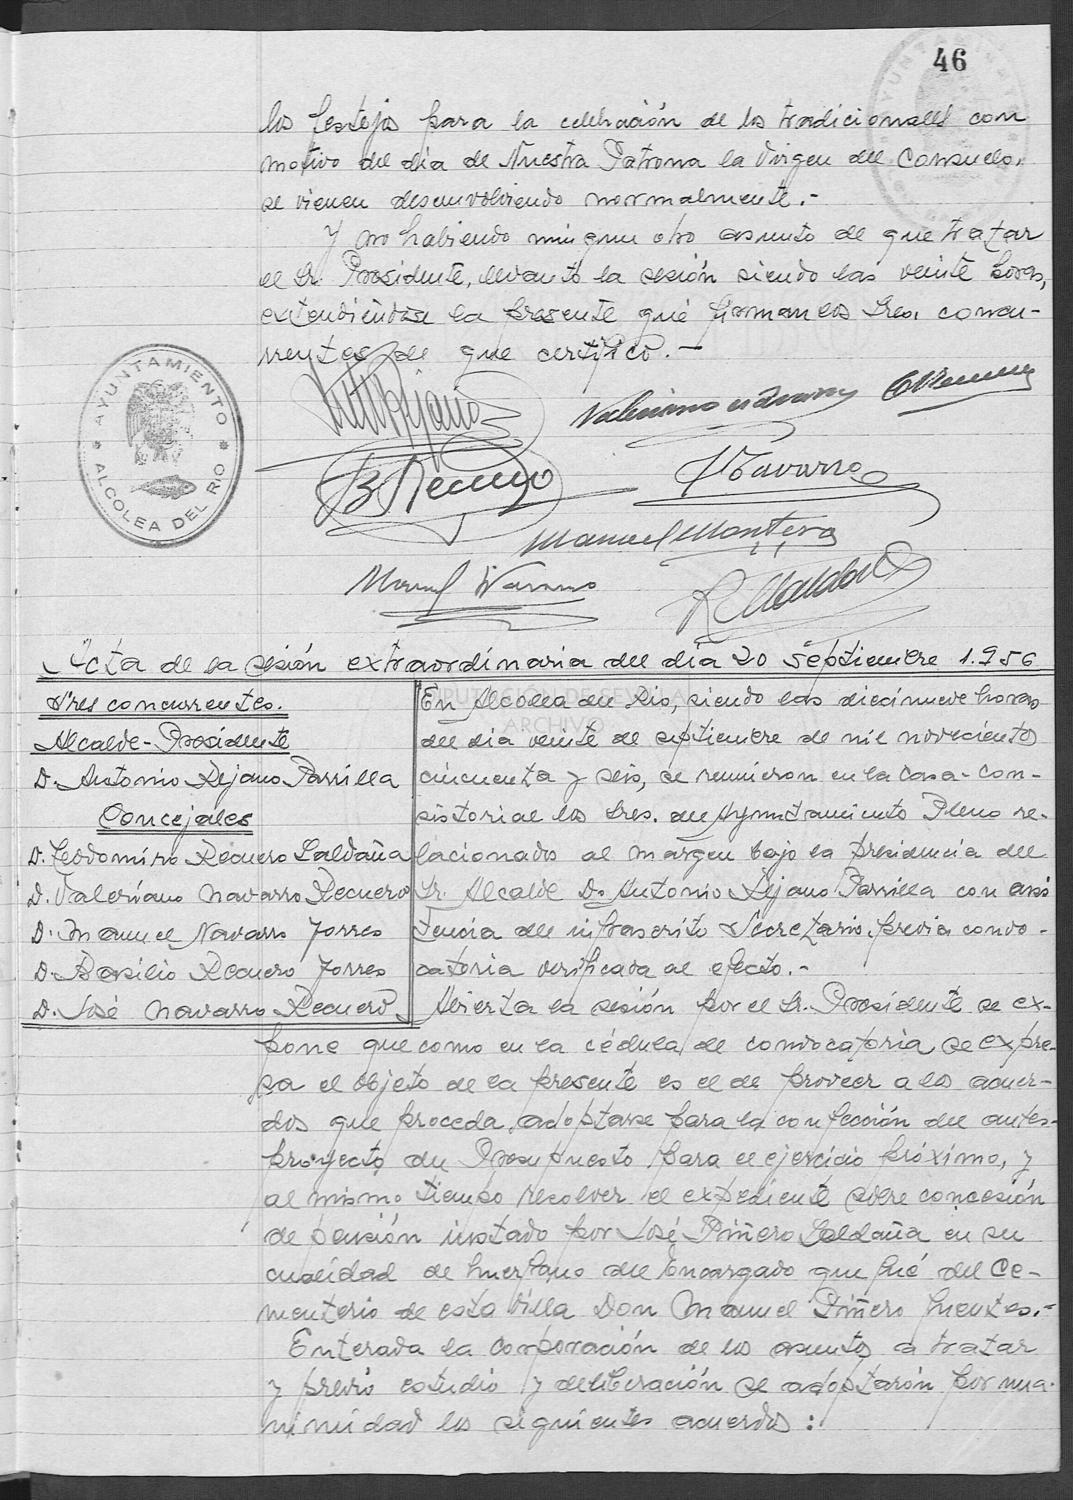 46
los festejos para la celebración de los tradicionales con
motivo del día de Nuestra Patrona la Virgen del Consuelo,
se vienen desenvolviendo normalmente.-
Y no habiendo ningun otro asunto de que tratar
el Sr. Presidente, levantó la sesión siendo las veinte horas,
extendiéndose la presente qué firman los Sres. concu-
rrentes de que certifico.-
AYUNTAMIENTO
ALCOLEA DEL RIO
Valeriano Navarro
B Recuero
J Navarro
Manuel Montero
Manuel Navarro
Acta de la sesión extraordinaria del día 20 Septiembre 1.956
Sres concurrentes.
Alcalde-Presidente
D. Antonio Rejano Parrilla
Concejales
D. Teodomiro Recuero Saldaña
D. Valeriano Navarro Recuero
D. Manuel Navarro Torres
D. Basilio Recuero Torres
D. José Navarro Recuero
DIPUTACIÓN DE SEVILLA
ARCHIVO
En Alcolea del Rio, siendo las diecinueve horas
del dia veinte de septiembre de mil novecientos
cincuenta y seis, se reunieron en la Casa-Con-
sistorial los Sres. del Ayuntamiento Pleno re-
lacionados al margen bajo la presidencia del
Sr. Alcalde D. Antonio Rejano Parrilla con asis
tencia del infrascrito Secretario, previa convo-
catoria verificada al efecto.-
Abierta la sesión por el Sr. Presidente se ex-
pone que como en la cédula de convocatoria se expre-
sa el objeto de la presente es el de proveer a los acuer-
dos que proceda adoptarse para la confección del antes-
proyecto del Presupuesto para el ejercicio próximo, y
al mismo tiempo resolver el expediente sobre concesión
de pensión instado por José Piñero Saldaña en su
cualidad de huerfano del Encargado que fué del Ce-
menterio de esta Villa Don Manuel Piñero Fuentes.-
Enterada la Corporación de los asuntos a tratar
y previo estudio y deliberación se adoptarón por una-
nimidad los siguientes acuerdos: